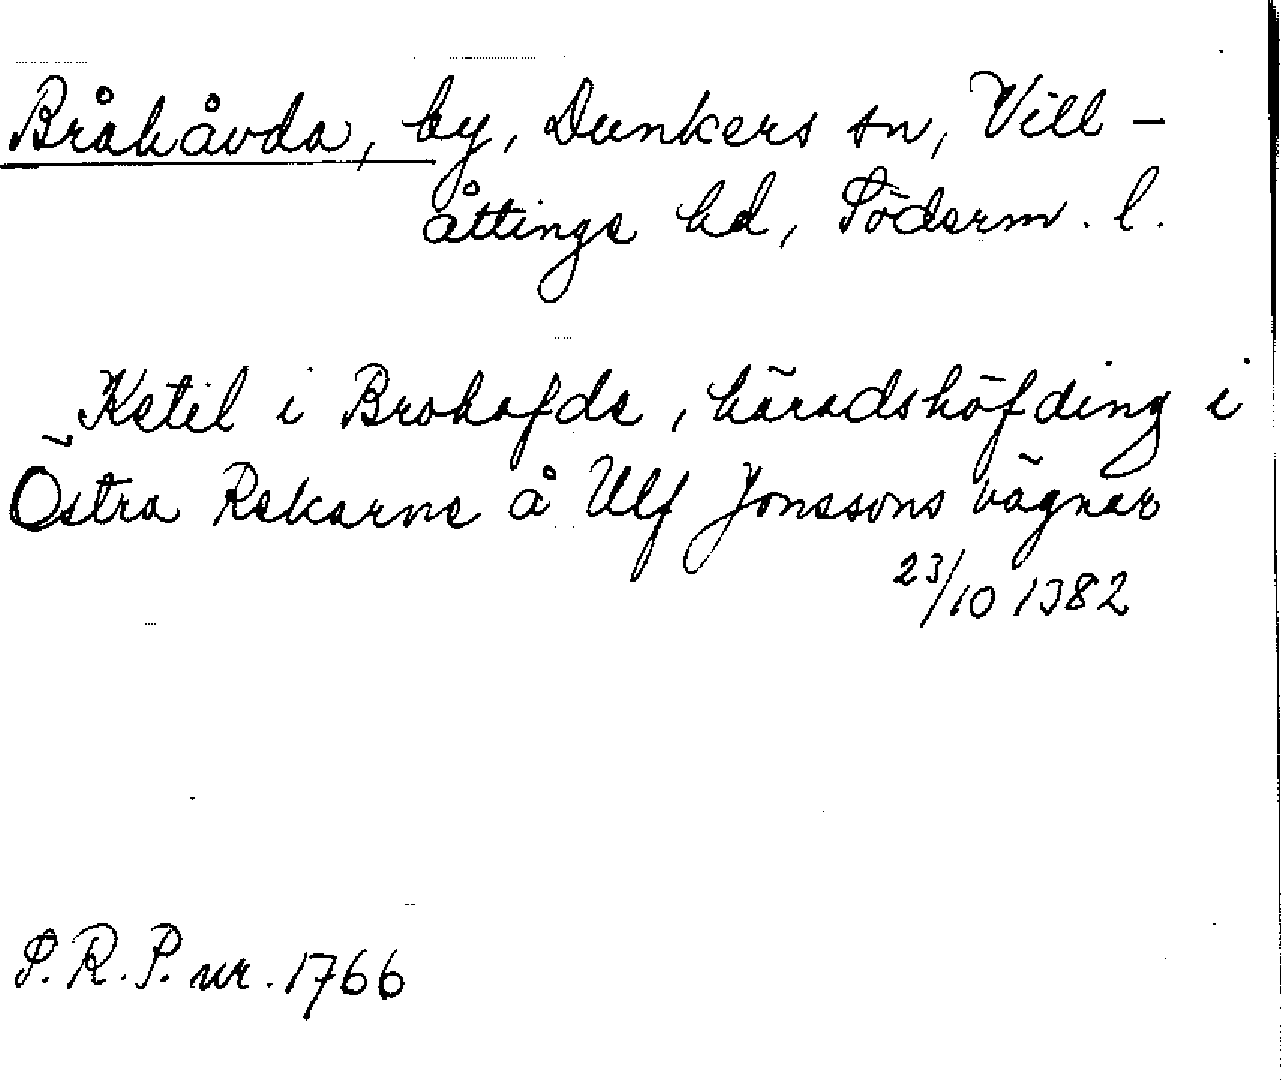 Bråhåvda, by, Dunkers sn, Vill-
åttinge hd, Söderm. l.
Ketil i Brohofde, häradshöfding i
Östra Rekarne å Ulf Jonssons vägnar
23/10 1382
S. R. P. nr. 1766